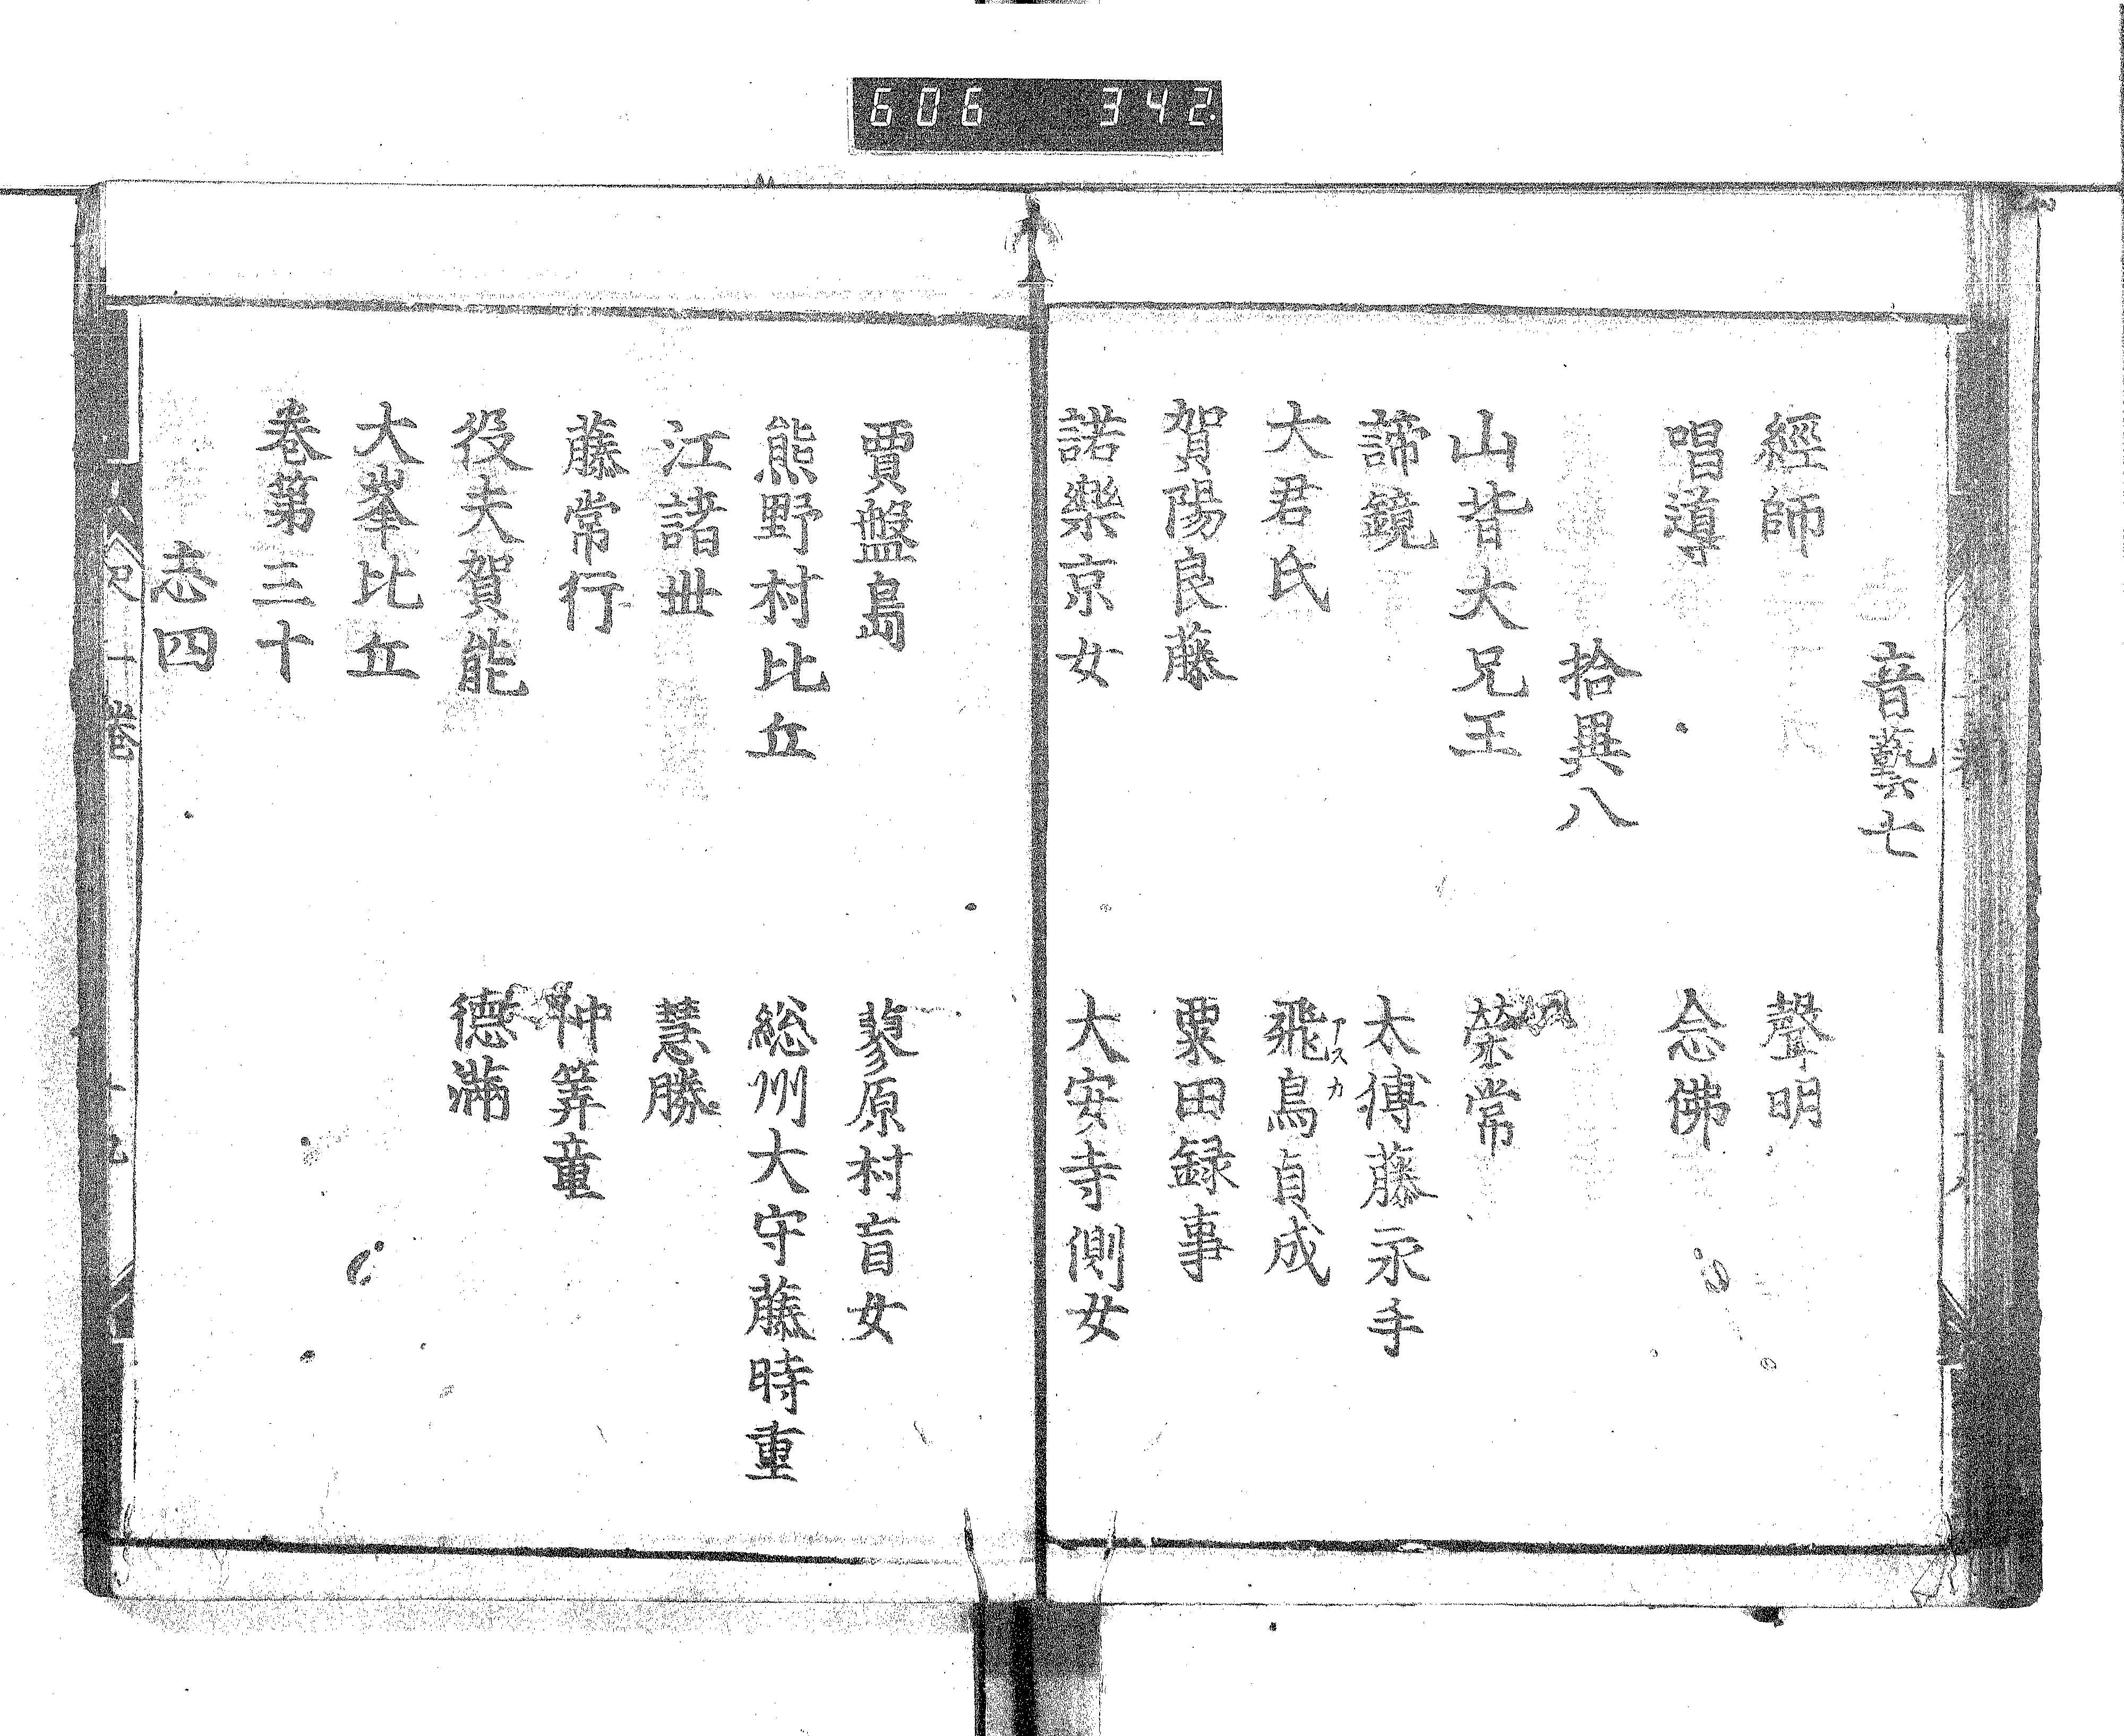 606 342
音藝七
經師 聲明
唱導 念佛
拾異八
山背大兄王 榮常
諦鏡 太傅藤永手
大君氏 飛鳥貞成
アスカ
賀陽良藤 粟田録事
諾樂京女 大安寺側女
賈盤島 蓼原村盲女
熊野村比丘 総州大守藤時重
江諸世 慧勝
藤常行 仲筭童
役夫賀能 德滿
大峯比丘
卷第三十
志四